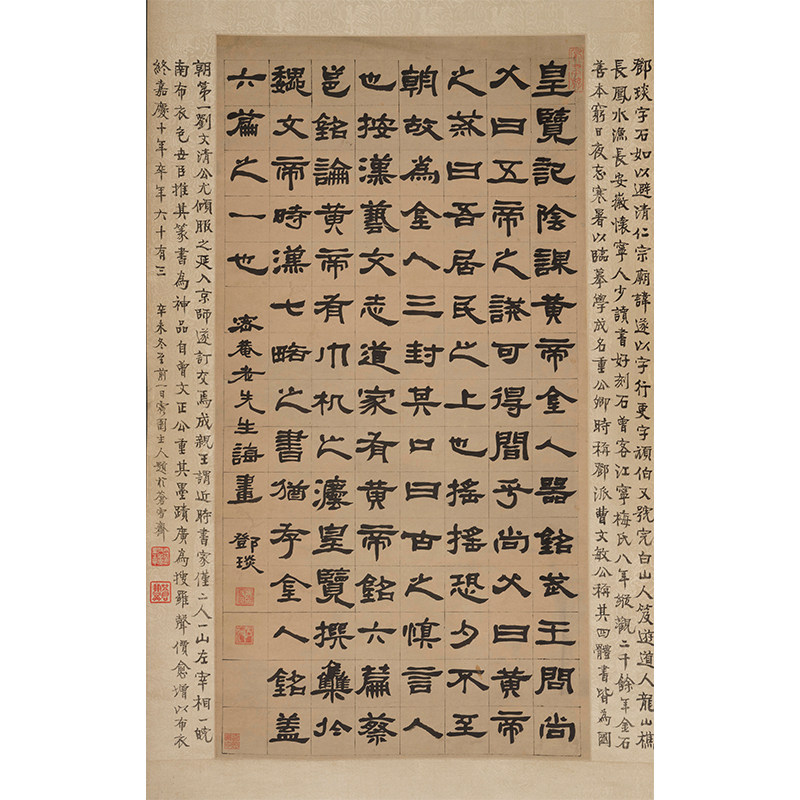 鄧琰字石如以避清仁宗廟諱遂以字行更字頑伯又號完白山人笈遊道人龍山樵
長鳳水漁長安徽懷寧人少讀書好刻石曾客江寧梅氏八年縱觀二千餘年金石
善本窮日夜忘寒暑以臨摹學成名重公卿時稱鄧派曹文敏公稱其四體書皆為國
皇覽記陰謀黃帝金人器銘武王問尚
父曰五帝之誡可得聞乎尚父曰黃帝
之戒曰吾居民之上也搖搖恐夕不至
朝故為金人三封其口曰古之慎言人
也按漢藝文志道家有黃帝銘六篇蔡
邕銘論黃帝有巾机之灋皇覽撰集於
魏文帝時漢七略之書猶存金人銘蓋
六篇之一也
密菴老先生誨畫
鄧琰
朝第一劉文清公尤傾服之延入京師遂訂交焉成親王謂近時書家僅二人一山左宰相一皖
南布衣包世臣推其篆書為神品自曾文正公重其墨蹟廣為搜羅聲價愈增以布衣
終嘉慶十年卒年六十有三
辛未冬至前一日寄園主人題於蒼雪齋